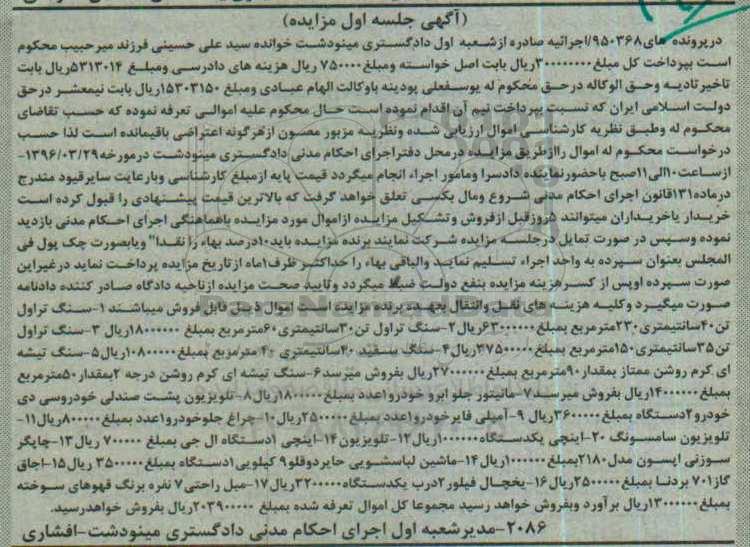 (آگهی جلسه اول مزایده)
درپرونده های۹۵۰۳۶۸/اجرائیه صادره ازشعبه اول دادگستری مینودشت خوانده سید علی حسینی فرزند میرحبیب محکوم
است بپرداخت کل مبلغ۳۰۰۰۰۰۰۰۰ریال بابت اصل خواسته ومبلغ۷۵۰۰۰۰ ریال هزینه های دادرسی ومبلغ ۵۳۱۳۰۱۴ریال بابت
تاخیرتادیه وحق الوکاله درحق محکوم له یوسفعلی پودینه باوکالت الهام عبادی ومبلغ ۱۵۳۰۳۱۵۰ریال بابت نیمعشر درحق
دولت اسلامی ایران که نسبت بپرداخت نیم آن اقدام نموده است حال محکوم علیه اموالی تعرفه نموده که حسب تقاضای
محکوم له وطبق نظریه کارشناسی اموال ارزیابی شده ونظریه مزبور مصون ازهرگونه اعتراضی باقیمانده است لذا حسب
درخواست محکوم له اموال راازطریق مزایده درمحل دفتراجرای احکام مدنی دادگستری مینودشت درمورخه۱۳۹۶/۰۳/۲۹-
ازساعت۱۰الی۱۱صبح باحضورنماینده دادسرا ومامور اجراء انجام میگردد قیمت پایه ازمبلغ کارشناسی وبارعایت سایرقیود مندرج
درماده۱۳۱قانون اجرای احکام مدنی شروع ومال بکسی تعلق خواهد گرفت که بالاترین قیمت پیشنهادی را قبول کرده است
خریدار یاخریداران میتوانند ۵روزقبل ازفروش وتشکیل مزایده ازاموال مورد مزایده باهماهنگی اجرای احکام مدنی بازدید
نموده وسپس در صورت تمایل درجلسه مزایده شرکت نمایند برنده مزایده باید۱۰درصد بهاء را نقدا" ویابصورت چک پول فی
المجلس بعنوان سپرده به واحد اجراء تسلیم نماید والباقی بهاء را حداکثر ظرف۱ماه ازتاریخ مزایده پرداخت نماید درغیراین
صورت سپرده اوپس از کسرهزینه مزایده بنفع دولت ضبط میگردد وتایید صحت مزایده ازناحیه دادگاه صادر کننده دادنامه
صورت میگیرد وکلیه هزینه های نقل وانتقال بعهده برنده مزایده است اموال ذیل قابل فروش میباشند ۱-سنگ تراول
تن۴۰سانتیمتری۲۳۰مترمربع بمبلغ۶۳۰۰۰۰۰۰ریال۲-سنگ تراول تن۳۰سانتیمتری۶۰مترمربع بمبلغ ۱۸۰۰۰۰۰۰ریال ۳-سنگ تراول
تن۳۵سانتیمتری۱۵۰مترمربع بمبلغ۳۷۵۰۰۰۰۰ریال۴-سنگ سفید ۴۰سانتیمتری ۴۰ مترمربع بمبلغ۱۰۸۰۰۰۰۰ریال۵-سنگ تیشه
ای کرم روشن ممتاز بمقدار۹۰مترمربع بمبلغ۲۷۰۰۰۰۰۰ریال بفروش میرسد۶-سنگ تیشه ای کرم روشن درجه ۲بمقدار۵۰مترمربع
بمبلغ۱۴۰۰۰۰۰۰ریال بفروش میرسد۷-مانیتور جلو ابرو خودرو۱عدد بمبلغ۱۸۰۰۰۰۰ریال۸-تلویزیون پشت صندلی خودروسی دی
خودرو۲دستگاه بمبلغ۳۶۰۰۰۰۰ریال ۹-آمپلی فایرخودرو۱عدد بمبلغ۲۵۰۰۰۰۰ریال۱۰-چراغ جلوخودرو۱عدد بمبلغ۸۰۰۰۰۰ریال۱۱-
تلویزیون سامسونگ ۲۰-اینچی یکدستگاه۱۰۰۰۰۰۰ریال۱۲-تلویزیون۱۴-اینچی ۱دستگاه ال جی بمبلغ ۷۰۰۰۰۰ ریال۱۳-چاپگر
سوزنی اپسون مدل۲۱۸۰بمبلغ۱۰۰۰۰۰۰ریال۱۴-ماشین لباسشویی حایردوقلو۹ کیلویی۱دستگاه بمبلغ۳۵۰۰۰۰۰ ریال۱۵-اجاق
گاز۷۰۱ بردنا بمبلغ۲۵۰۰۰۰۰ریال۱۶-یخچال فیلور۲درب یکدستگاه۳۲۰۰۰۰۰ریال۱۷-مبل راحتی۷ نفره برنگ قهوهای سوخته
بمبلغ۱۳۰۰۰۰۰۰ریال برآورد وبفروش خواهد رسید مجموعا کل اموال تعرفه شده بمبلغ ۲۰۳۹۰۰۰۰۰ریال بفروش خواهدرسید.
۲۰۸۶-مدیرشعبه اول اجرای احکام مدنی دادگستری مینودشت-افشاری